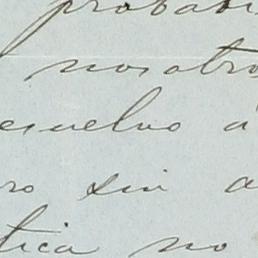 probabi
nosotro
esuelvo a
ro sin a
tica no